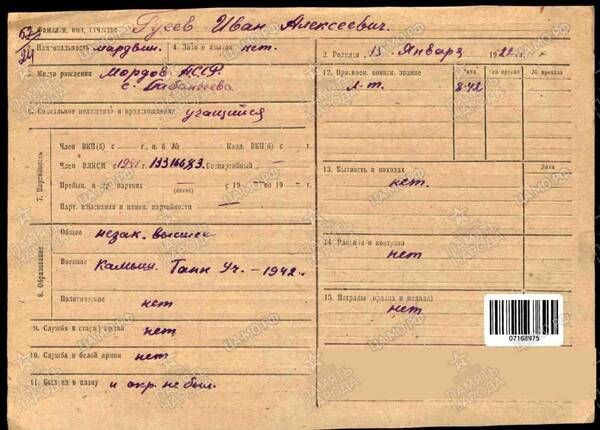 67/24
1. Фамилия, имя, отчество Гусев Иван Алексеевич.
3. Национальность мордвин. 4. Знание языков нет.
5. Место рождения Мордов. АССР.
с.
6. Социальное положение и происхождение учащийся
7. Партийность
Член ВКП(б) с — г., п. б. № Канд. ВКП(б) с — г.
Член ВЛКСМ с 1941 г. Беспартийный —
Пребыв. в др. партиях — (каких) с 19 — по 19 — г.
Парт. взыскания и прич. партийности —
8. Образование
Общее незак. высшее
Военное Камыш. Танк Уч. – 1942.
Политическое нет
9. Служба в старой армии нет
10. Служба в белой армии нет
11. Был ли в плену и окр. не был.
2. Родился 15 Января 1922 г.
12. Присвоен. воинск. звание Дата № приказа Дата № приказа
Л-т. 8-42
13. Бытность в походах Дата
нет.
14. Ранения и контузии
нет
15. Награды (ордена и медали)
нет
07168975
ПАМЯТЬ НАРОДА
ЦАМО.РФ